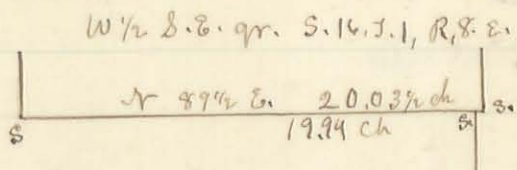 W ½ S.E. qr. S.16.T.1, R.8.E.
N 89½ E. 20.03½ ch
19.94 ch
S S. S.